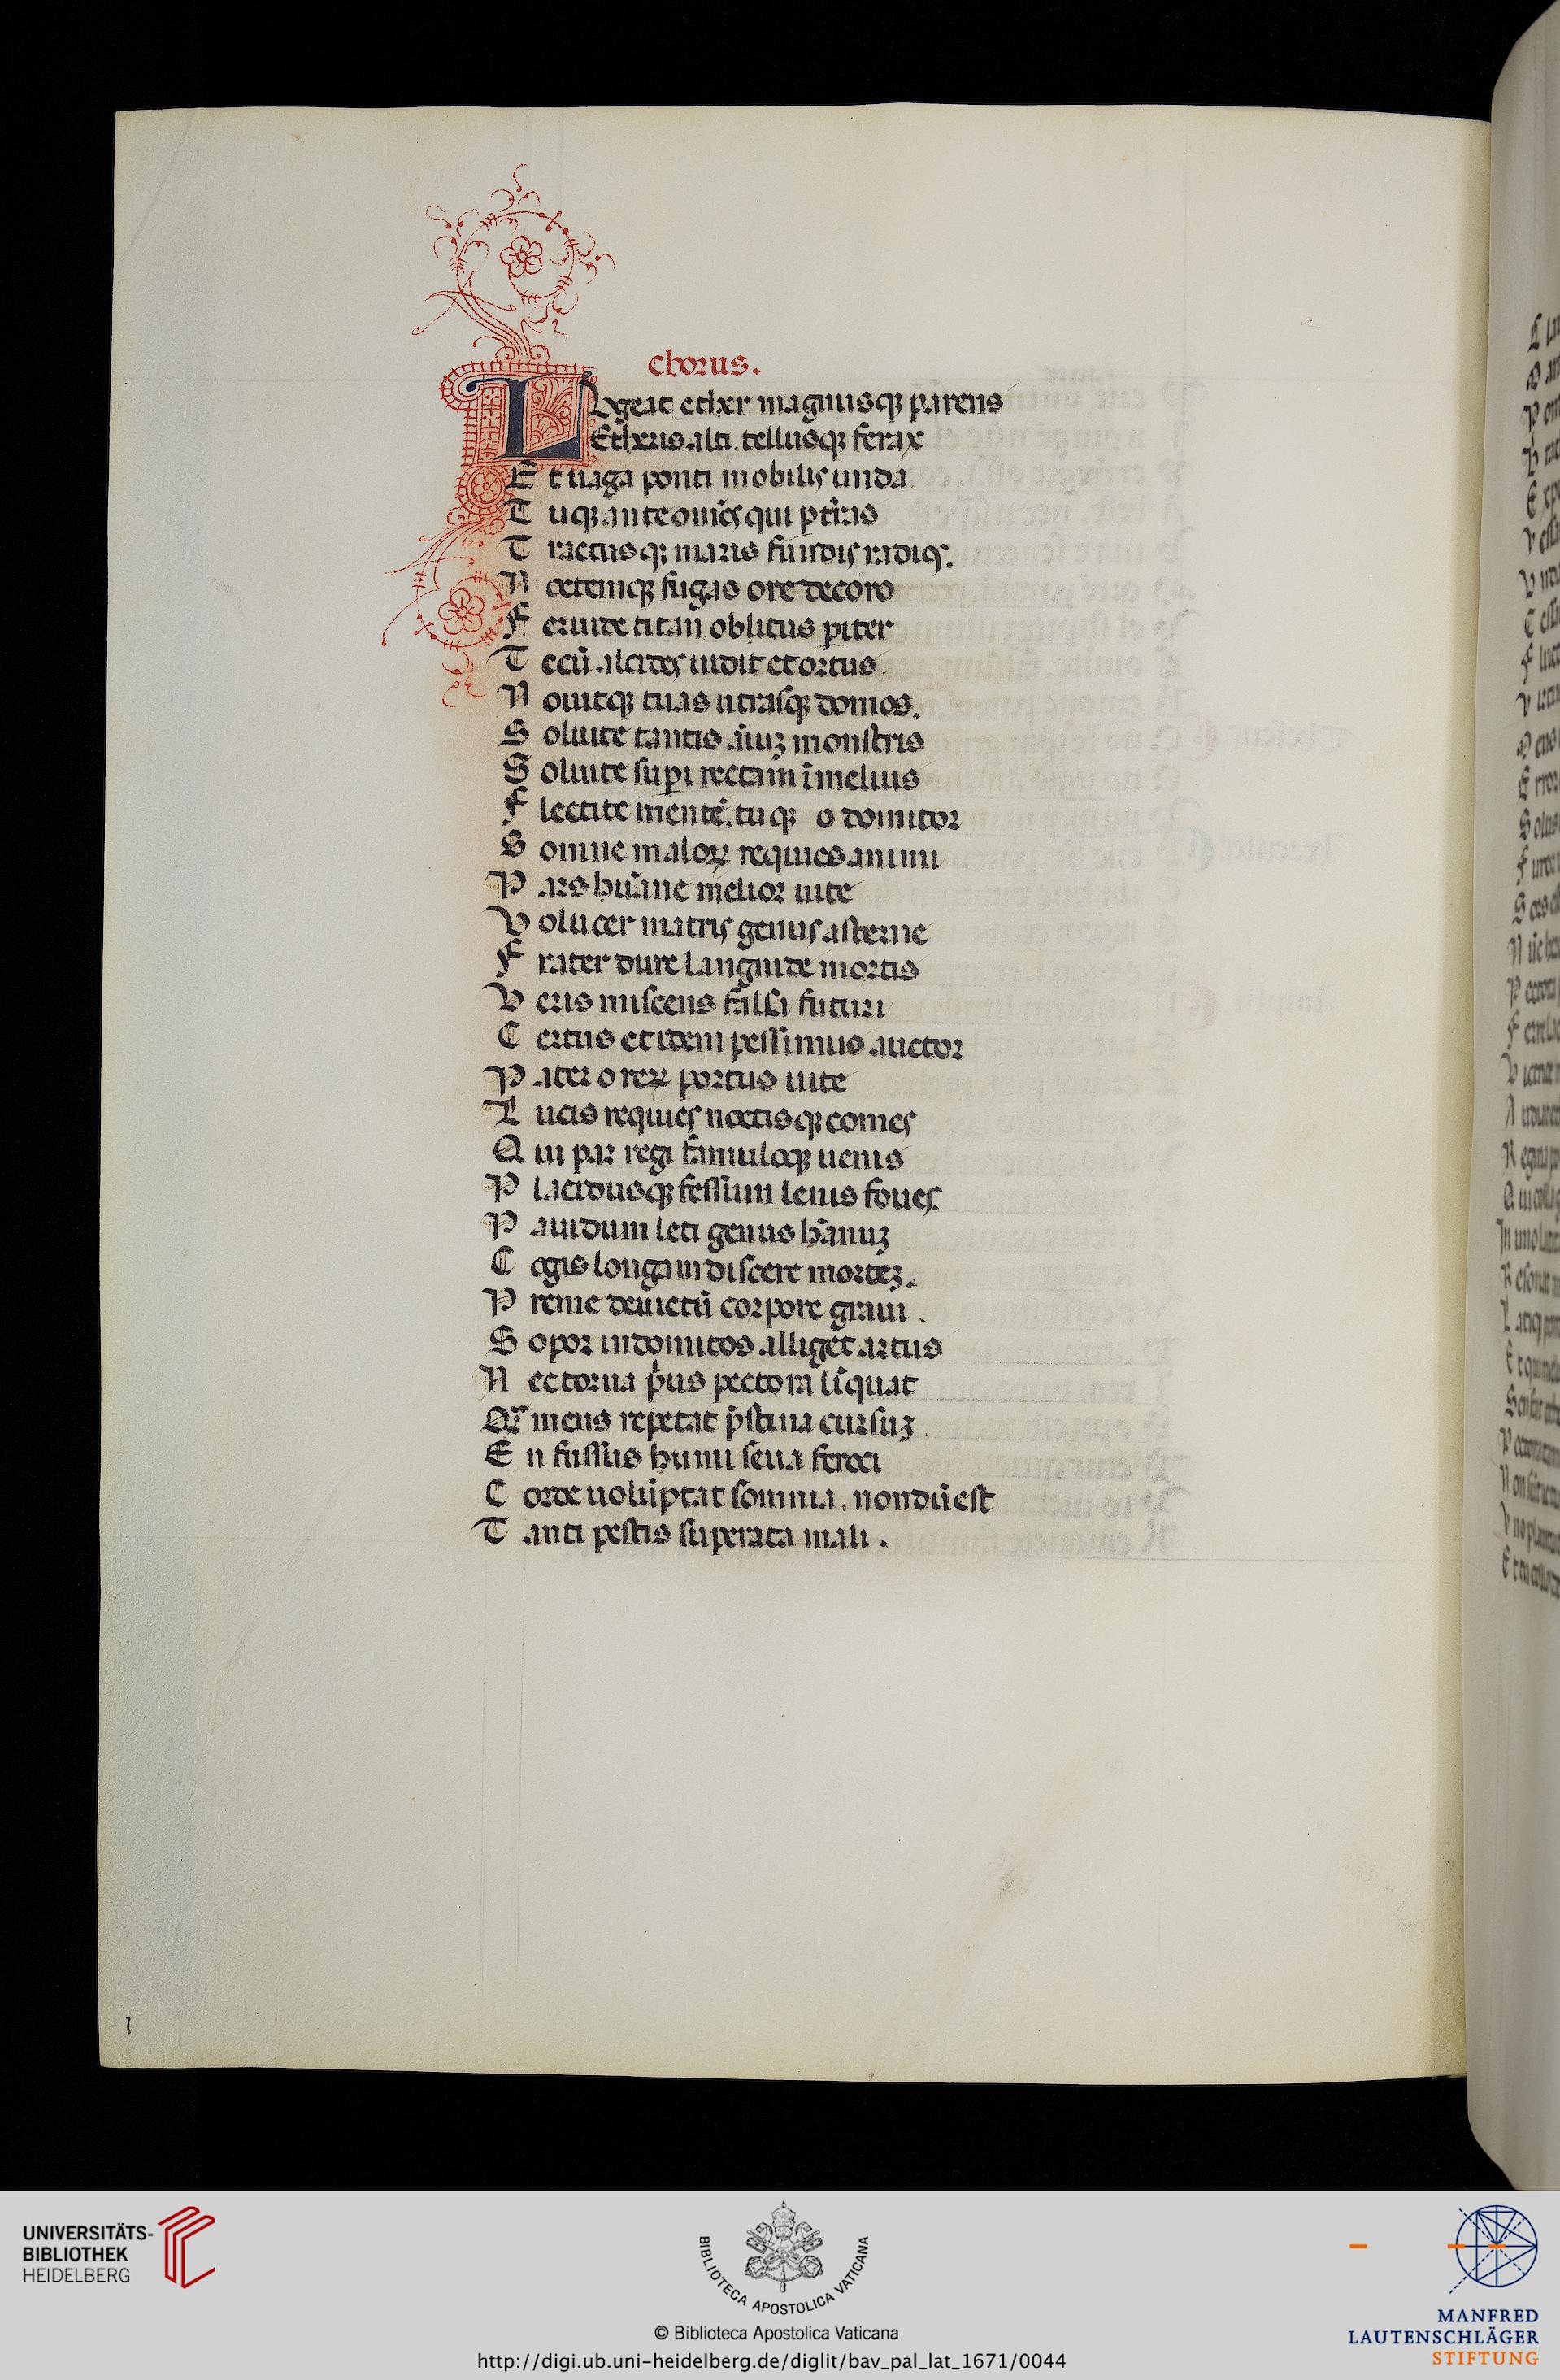 chorus.
LVgeat ether magnusqꝫ parens
Etherus alti. tellusqꝫ ferax
E t uaga ponti mobilis unda
T uqꝫ ante om̄es qui ꝑ t̄ras
T ractusqꝫ maris fundis radios.
N octemqꝫ fugas ore decoro
F eruide titan obitus pariter
T ecū alcides uidit et ortus.
N ouitqꝫ tuas utrasqꝫ domos.
S oluite tantis aīuꝫ monstris
S oluite suꝑi rectam ī melius
F lectite mentē. tuqꝫ o domitor
S omne maloꝝ requies animi
P ars hūane melior uite
V olucer matris genus asterne
F rater dure languide mortis
V eris miscens falsa futuri
C ertus et idem pessimus auctor
P ater o reꝝ portus uite
L ucis requies noctisqꝫ comes
Q ui par regi famuloqꝫ uenis
P lacidusqꝫ fessum lenis foues.
P auidum leti genus hūanuꝫ
C ogis longam discere morteꝫ.
P reme deuictū corpore graui.
S opor indomitos alliget artus
N ec torua pͥus pectora līquat
Qͣꝫ mens repetat pͥstina cursuꝫ.
E n fusus humi seua feroci
C orde uolūptat somnia. nondū est
T anti pestis superata mali.
l
UNIVERSITÄTS-
BIBLIOTHEK
HEIDELBERG
BIBLIOTECA APOSTOLICA VATICANA
© Biblioteca Apostolica Vaticana
http://digi.ub.uni-heidelberg.de/diglit/bav_pal_lat_1671/0044
MANFRED
LAUTENSCHLÄGER
STIFTUNG